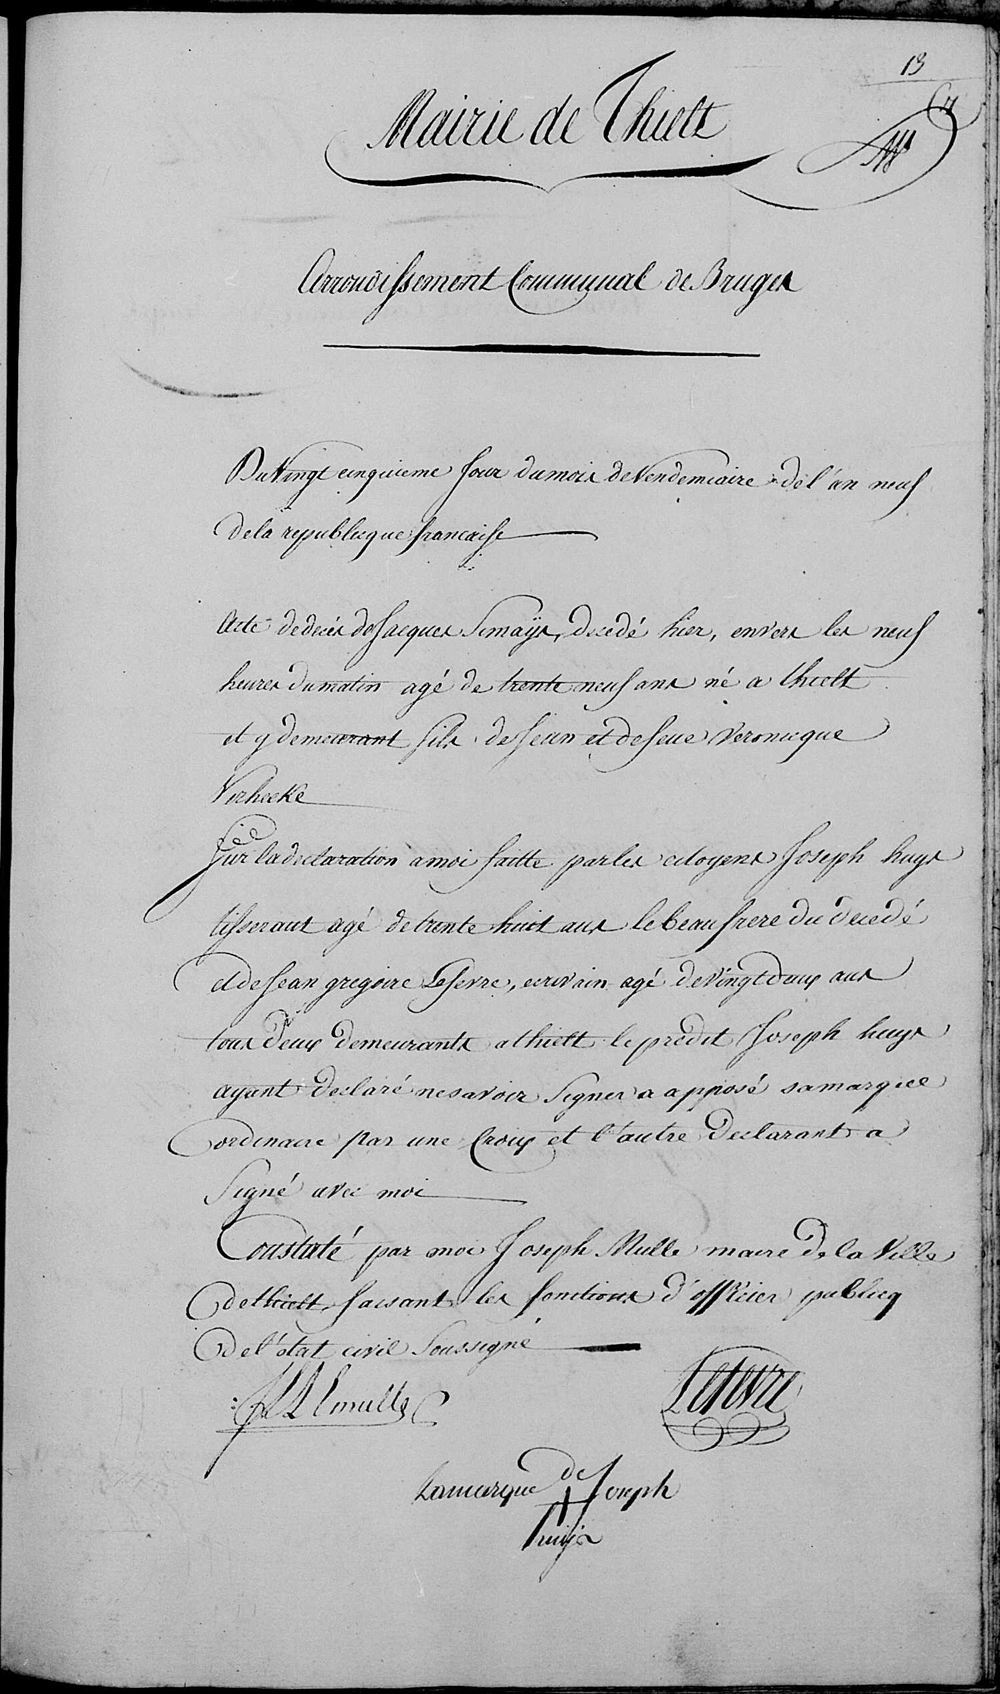 13
7
Mairie de Thielt
Arrondissement Communal de Bruges
Du Vingt cinquieme Jour du mois de Vendemiaire de l'an neuf
de la republicque francaise
Acte de decés de Jacques Simaÿs, decedé hier, envers les neuf
heures du matin agé de trente neuf ans né a thielt
et y demeurant fils de Jean et de feue Veronicque
Verheeke
Sur la declaration a moi faitte par les citoyens Joseph huys
tisserant agé de trente huit ans le beau frere du decedé
et de Jean gregoire Lefevre, ecrivain agé de vingt deux ans
tous deux demeurants a thielt le prédit Joseph huys
ayant declaré ne savoir signer a apposé sa marque
ordinaire par une Croix et l'autre Declarant a
Signé avec moi
Constaté par moi Joseph Mulle maire de la Ville
de thielt, faisant les fonctions d'officier publicq
de l'état civil Soussigné
Mulle
Lefevre
La marque de Joseph
huijs